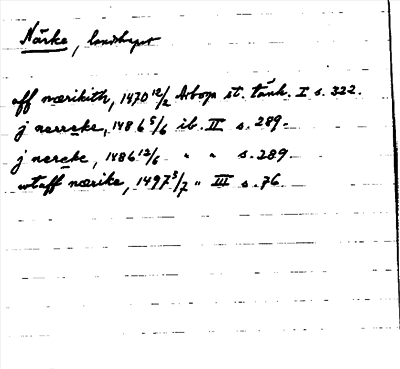 Närke, landskapet
aff nærikith, 1470 12/2 Arboga st. tänk. I s. 322.
j nerecke, 1486 5/6 ib. II s. 289.
j nerecke, 1486 12/6 " " s. 289.
wtaff nærike, 1497 3/7 " III s. 76.